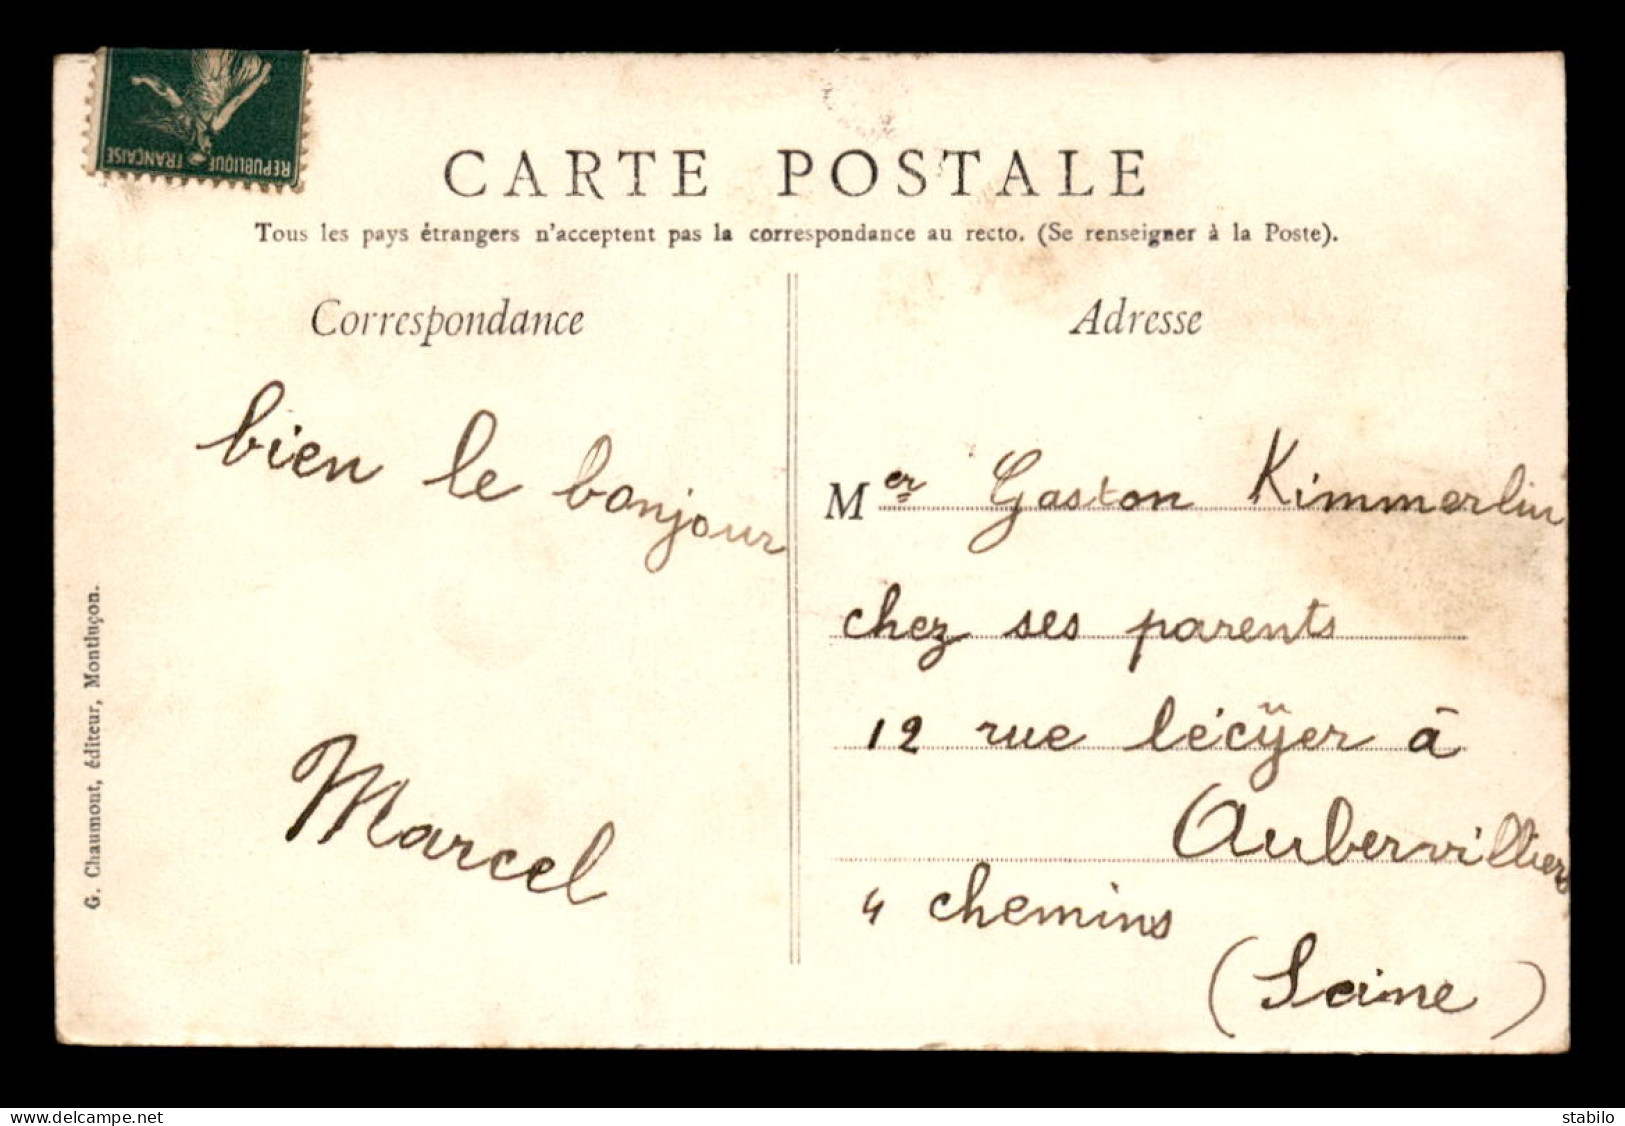 REPUBLIQUE FRANÇAISE
CARTE POSTALE
Tous les pays étrangers n'acceptent pas la correspondance au recto. (Se renseigner à la Poste).
Correspondance
bien le bonjour
Marcel
G. Chaumont, éditeur, Montluçon.
Adresse
Mer Gaston Kimmerlin
chez ses parents
12 rue lécÿer à
Aubervilliers
4 chemins
(Seine)
delcampe.net
stabilo